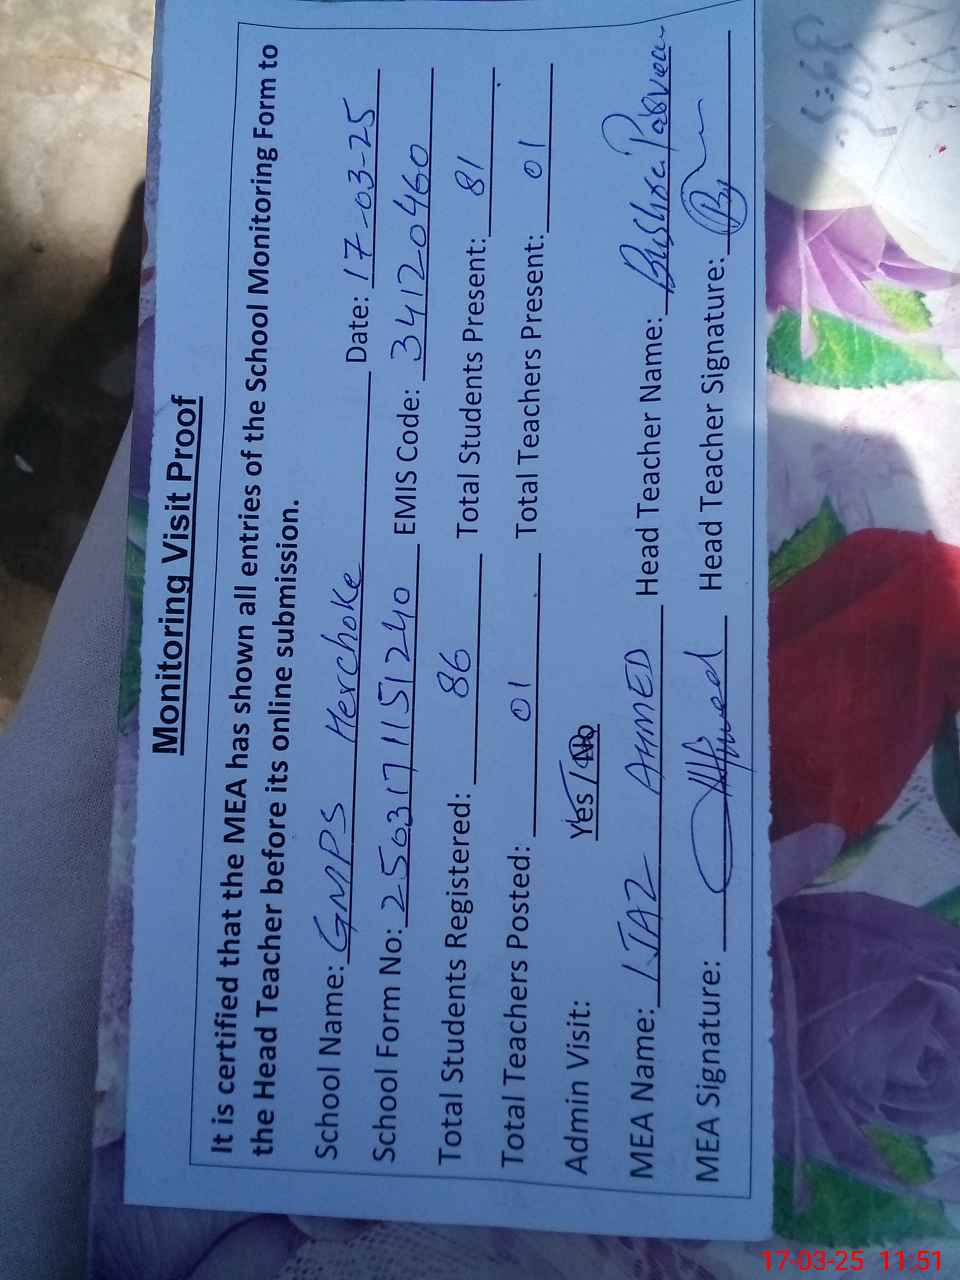 Monitoring Visit Proof
It is certified that the MEA has shown all entries of the School Monitoring Form to
the Head Teacher before its online submission.
School Name: GMPS Herchoke Date: 17-03-25
School Form No: 2503171151240 EMIS Code: 34120460
Total Students Registered: 86 Total Students Present: 81
Total Teachers Posted: 01 Total Teachers Present: 01
Admin Visit: Yes / No
MEA Name: IJAZ AHMED Head Teacher Name: Bushra Parveen
MEA Signature: Ahmed Head Teacher Signature:
17-03-25 11:51